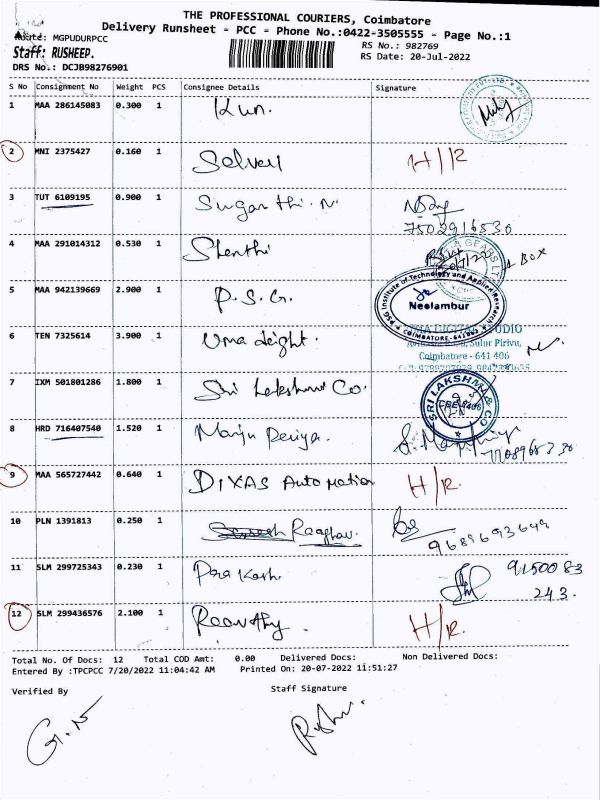 THE PROFESSIONAL COURIERS, Coimbatore
Delivery Runsheet - PCC - Phone No.:0422-3505555 - Page No.:1
Route: MGPUDURPCC
RS No.: 982769
Staff: RUSHEEP.
RS Date: 20-Jul-2022
DRS No.: DCJB98276901
S No Consignment No Weight PCS Consignee Details Signature
1 MAA 286145083 0.300 1 Kun.
2 MNI 2375427 0.160 1 Selvey H/R
3 TUT 6109195 0.900 1 Suganthi. N.
7502916530
4 MAA 291014312 0.530 1 Shenthi
GEARS LTD
BOX
5 MAA 942139669 2.900 1 P.S.G.
PSG Institute of Technology and Applied Research
Neelambur
COIMBATORE-641062
6 TEN 7325614 3.900 1 Uma
UMA DIGITAL STUDIO
Sulur Pirivu,
Coimbatore - 641 406
7 IXM 501801286 1.800 1 Sri Lakshmi Co.
SRI LAKSHMI & CO
8 HRD 716407540 1.520 1 Manju Periya.
9 MAA 565727442 0.640 1 DIXAS Automation H/R.
10 PLN 1391813 0.250 1 Raaghav.
9689693649
11 SLM 299725343 0.230 1 Prakash. 9150083
243.
12 SLM 299436576 2.100 1 H/R.
Total No. Of Docs: 12 Total COD Amt: 0.00 Delivered Docs: Non Delivered Docs:
Entered By :TPCPCC 7/20/2022 11:04:42 AM Printed On: 20-07-2022 11:51:27
Verified By Staff Signature
G.N